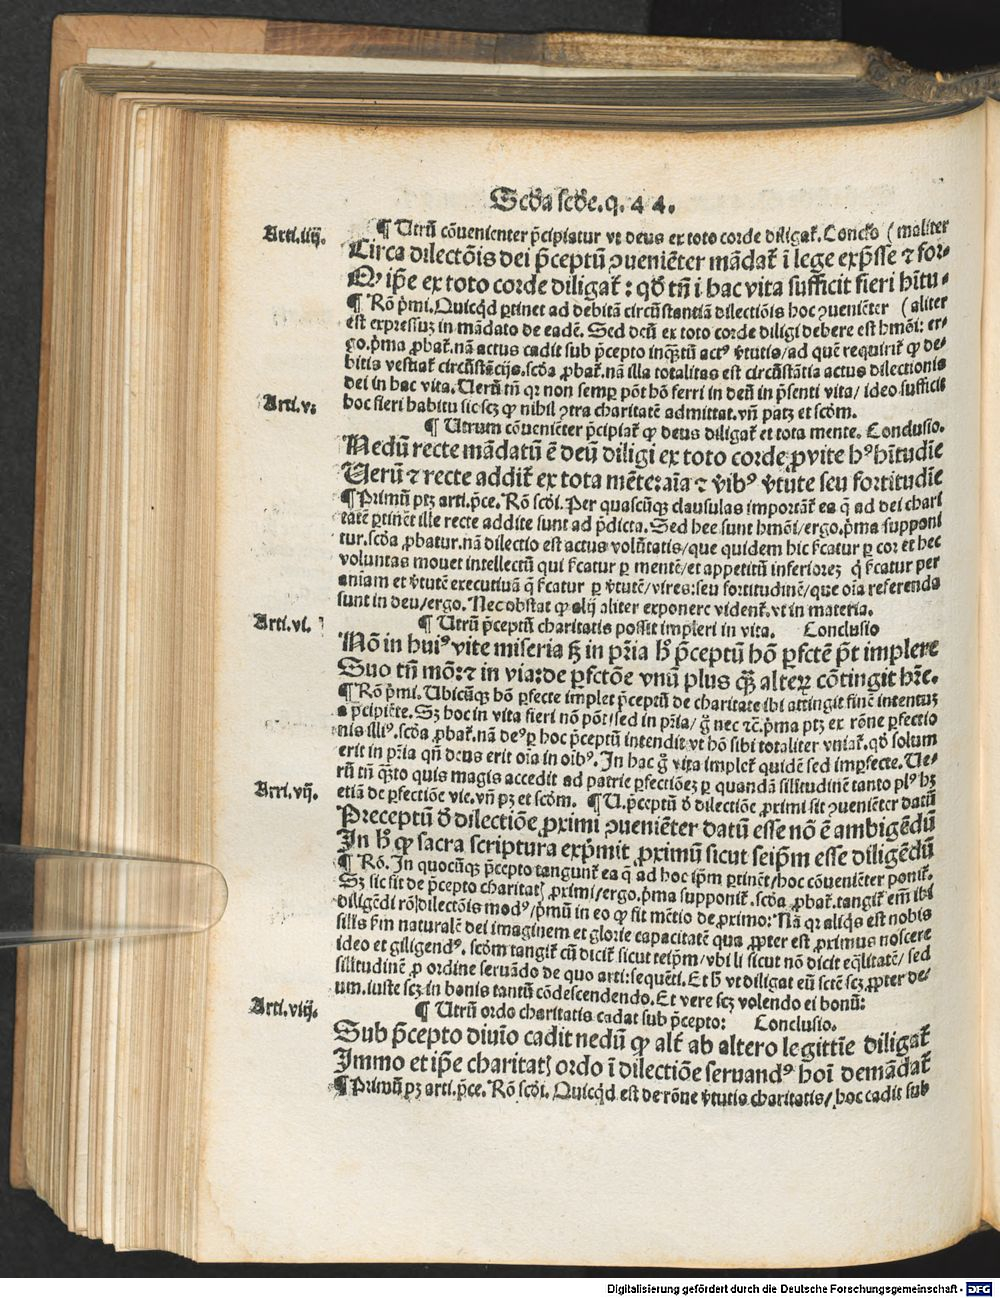 Scd̄a scd̄e. q. 44.
Arti. iiij.
¶ Utrū cōvenienter p̄cipiatur vt deus ex toto corde diligat᷑. Conclō (maliter
Circa dilectōis dei p̄ceptū ꝯueniēter mādat᷑ ī lege exp̄sse ⁊ for-
Ꝙ ip̄e ex toto corde diligat᷑: qd̄ tn̄ ī hac vita sufficit fieri hītu-
¶ Rō p̄mi. Quicq̄d ꝑtinet ad debitā circūstantiā dilectiōis hoc ꝯueniēter (aliter
est expressiuꝫ in mādato de eadē. Sed deū ex toto corde diligi debere est hmōi: er-
go. p̄ma ꝓbat᷑. nā actus cadit sub p̄cepto inq̄ntū actꝰ v̄tutis/ad quē requirit᷑ ꝙ de-
bitis vestiat᷑ circūstācijs. scd̄a ꝓbat᷑. nā illa totalitas est circūstātia actus dilectionis
dei in hac vita. Uerū tn̄ qꝛ non semꝑ pōt hō ferri in deū in p̄senti vita/ ideo sufficit
Arti. v.
hoc fieri habitu sic scꝫ ꝙ nihil ꝯtra charitatē admittat. vn̄ patꝫ et scd̄m.
¶ Utrum cōueniēter p̄cipiat᷑ ꝙ deus diligat᷑ et tota mente. Conclusio.
Nedū recte mādatū ē deū diligi ex toto corde ꝓ vite hꝰ hītudīe
Uerū ⁊ recte addit᷑ ex tota mēte: aīa ⁊ v̄ibꝰ v̄tute seu fortitudīe
¶ Primū ptꝫ arti. p̄ce. Rō scd̄i. Per quascūqꝫ clausulas importāt᷑ ea q̄ ad dei chari
tatē ꝑtinēt ille recte addite sunt ad p̄dicta. Sed hee sunt hmōi/ergo. p̄ma supponi
tur. scd̄a ꝓbatur. nā dilectio est actus volūtatis/que quidem hic ſcatur ꝑ cor et hec
voluntas mouet intellectū qui ſcatur ꝑ mentē/et appetitū inferiorez q̄ ſcatur per
aniam et v̄tutē executiuā q̄ ſcatur ꝑ v̄tutē/vires: seu fortitudinē/que oīa referenda
sunt in deu/ergo. Nec obstat ꝙ alij aliter exponere vident᷑. vt in materia.
Arti. vi.
¶ Utrū p̄ceptū charitatis possit impleri in vita. Conclusio
Nō in huiꝰ vite miseria sꝫ in pr̄ia hͦ p̄ceptū hō ꝑfctē p̄t implere
Suo tn̄ mō: ⁊ in via: de ꝑfctōe vnū plus q̄ꝫ alterꝝ cōtingit hr̄e.
¶ Rō p̄mi. Ubicūqꝫ hō ꝑfecte implet p̄ceptū de charitate ibi attingit finē intentuꝫ
a p̄cipiēte. Sꝫ hoc in vita fieri nō pōt/sed in pr̄ia/ ḡ nec ⁊c̄. p̄ma ptꝫ ex rōne ꝑfectio
nis illiꝰ. scd̄a ꝓbat᷑. nā deꝰ ꝑ hoc p̄ceptū intendit vt hō sibi totaliter vniat᷑. qd̄ solum
erit in pr̄ia qn̄ deus erit oīa in oībꝰ. In hac ḡ vita implet᷑ quidē sed imꝑfecte. Ue-
rū tn̄ q̄ꝫto quis magis accedit ad patrie ꝑfectiōeꝫ ꝑ quandā silitudinē tanto plꝰ hꝫ
Arti. vij.
etiā de ꝑfectiōe vie. vn̄ pꝫ et scd̄m. ¶ U. p̄ceptū d̄ dilectiōe ꝓximi sit ꝯueniēter datū
Preceptū d̄ dilectiōe ꝓximi ꝯueniēter datū esse nō ē ambigēdū
In hͦ ꝙ sacra scriptura exp̄mit ꝓximū sicut seip̄m esse diligēdū
¶ Rō. In quocūqꝫ p̄cepto tangunt᷑ ea q̄ ad hoc ip̄m ꝑtinēt/hoc cōueniēter ponit᷑.
Sꝫ sic sit de p̄cepto charitatꝭ ꝓximi/ergo. p̄ma supponit᷑. scd̄a ꝓbat᷑. tangit᷑ em̄ ibi
diligēdi rō/dilectōis modꝰ/p̄mū in eo ꝙ sit mētio de ꝓximo: Nā qꝛ aliq̄s est nobis
silis ſm naturalē dei imaginem et glorie capacitatē qua ꝓpter est ꝓximus noscere
ideo et giligendꝰ. scd̄m tangit᷑ cū dicit᷑ sicut teip̄m/vbi li sicut nō dicit eq̄litatē/ sed
silitudinē ꝓ ordine seruādo de quo arti: sequēti. Et hͦ vt diligat eū sctē scꝫ ꝓpter de-
um. iuste scꝫ in bonis tantū cōdescendendo. Et vere scꝫ volendo ei bonū:
Arti. viij.
¶ Utrū ordo charitatis cadat sub p̄cepto: Conclusio.
Sub p̄cepto diuīo cadit nedū ꝙ alt᷑ ab altero legittīe diligat᷑
Immo et ip̄e charitatꝭ ordo ī dilectiōe seruandꝰ hoī demādat᷑
¶ Primū pꝫ arti. p̄ce. Rō scd̄i. Quicq̄d est de rōne v̄tutis charitatis/ hoc cadit sub
Digitalisierung gefördert durch die Deutsche Forschungsgemeinschaft - DFG